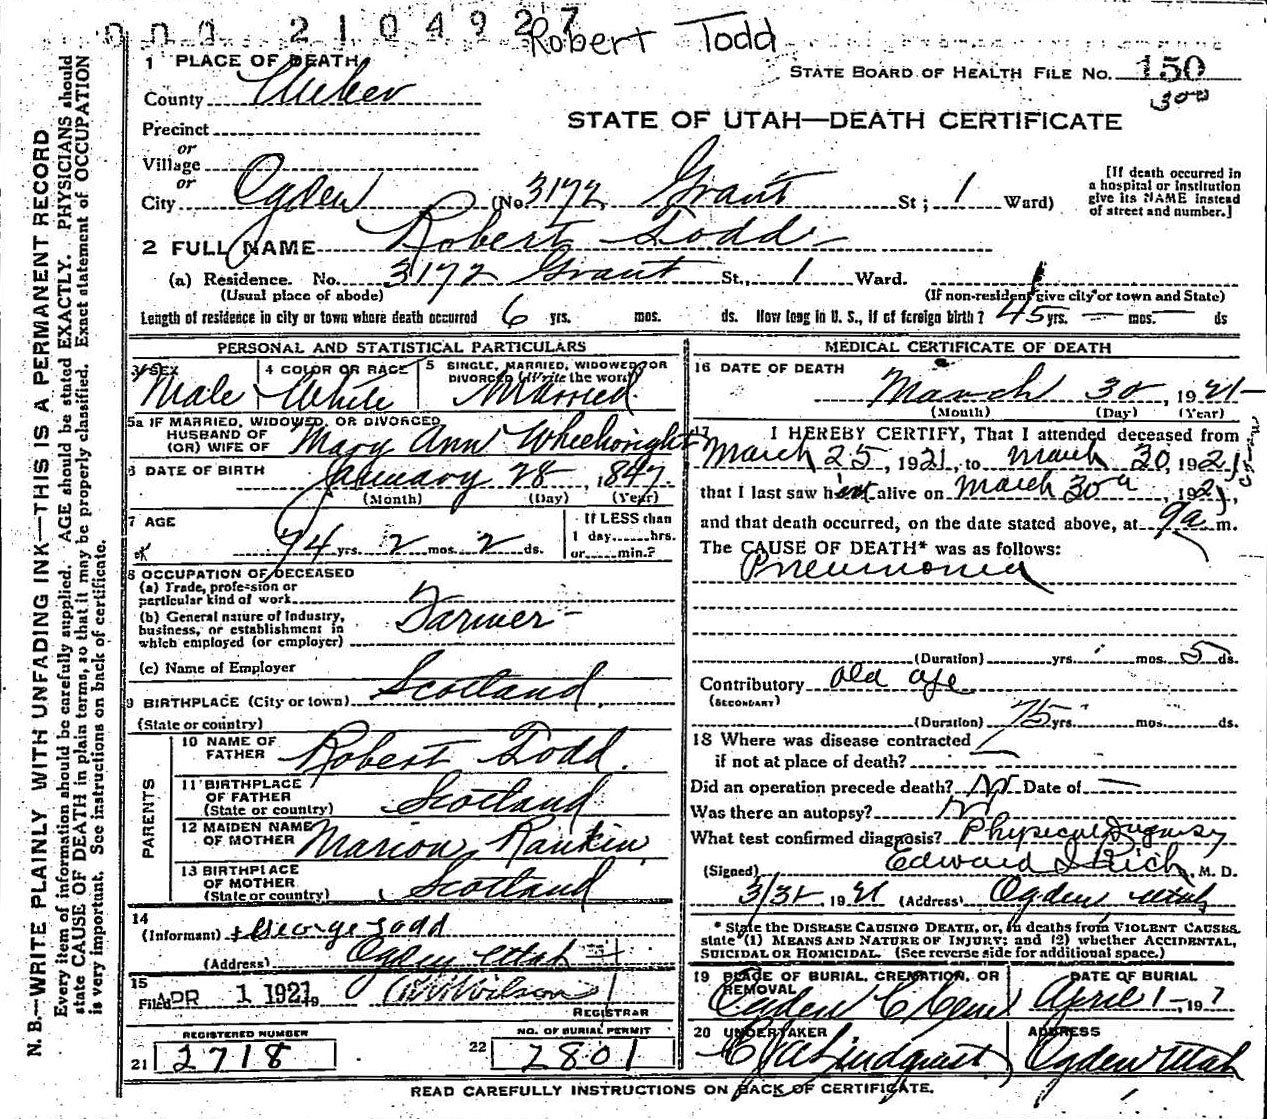 000 2104927
Robert Todd
1 PLACE OF DEATH
STATE BOARD OF HEALTH FILE NO. 150
300
County Weber
STATE OF UTAH—DEATH CERTIFICATE
Precinct
or
Village
or
City Ogden (No. 3172 Grant St; 1 Ward)
[If death occurred in
a hospital or institution
give its NAME instead
of street and number.]
2 FULL NAME Robert Todd
(a) Residence. No. 3172 Grant St., 1 Ward.
(Usual place of abode)
(If non-resident give city or town and State)
Length of residence in city or town where death occurred 6 yrs. mos. ds. How long in U. S., if of foreign birth? 45 yrs. — mos. — ds
PERSONAL AND STATISTICAL PARTICULARS
3 SEX
Male
4 COLOR OR RACE
White
5 SINGLE, MARRIED, WIDOWED, OR
DIVORCED (Write the word)
Married
5a IF MARRIED, WIDOWED, OR DIVORCED
HUSBAND OF
(OR) WIFE OF Mary Ann Wheelwright
6 DATE OF BIRTH January 28, 1847
(Month) (Day) (Year)
7 AGE
74 yrs. 2 mos. 2 ds.
If LESS than
1 day......hrs.
or......min.?
8 OCCUPATION OF DECEASED
(a) Trade, profession or
particular kind of work
(b) General nature of industry,
business, or establishment in
which employed (or employer)
Farmer
(c) Name of Employer
9 BIRTHPLACE (City or town) Scotland
(State or country)
PARENTS
10 NAME OF
FATHER Robert Todd.
11 BIRTHPLACE
OF FATHER
(State or country) Scotland
12 MAIDEN NAME
OF MOTHER Marion Rankin
13 BIRTHPLACE
OF MOTHER
(State or country) Scotland
14
(Informant) George Todd
(Address) Ogden Utah
15
Filed APR 1 1921 Wilson
REGISTRAR
REGISTERED NUMBER
21 2718
NO. OF BURIAL PERMIT
22 2801
MEDICAL CERTIFICATE OF DEATH
16 DATE OF DEATH
March 30, 1921
(Month) (Day) (Year)
17 I HEREBY CERTIFY, That I attended deceased from
March 25, 1921, to March 30, 1921,
that I last saw him alive on March 30, 1921,
and that death occurred, on the date stated above, at 9a m.
The CAUSE OF DEATH* was as follows:
Pneumonia
(Duration) yrs. mos. 5 ds.
Contributory old age
(SECONDARY)
(Duration) 75 yrs. mos. ds.
18 Where was disease contracted
if not at place of death?
Did an operation precede death? No Date of —
Was there an autopsy? No
What test confirmed diagnosis? Physical
(Signed) Edward I Rich, M. D.
3/31 1921 (Address) Ogden Utah
* State the DISEASE CAUSING DEATH, or, in deaths from VIOLENT CAUSES,
state (1) MEANS AND NATURE OF INJURY; and (2) whether ACCIDENTAL,
SUICIDAL OR HOMICIDAL. (See reverse side for additional space.)
19 PLACE OF BURIAL, CREMATION, OR
REMOVAL
Ogden C Cem
DATE OF BURIAL
April 1-, 19
20 UNDERTAKER
Lindquist
ADDRESS
Ogden Utah
READ CAREFULLY INSTRUCTIONS ON BACK OF CERTIFICATE.
N. B.—WRITE PLAINLY WITH UNFADING INK—THIS IS A PERMANENT RECORD
Every item of information should be carefully supplied. AGE should be stated EXACTLY. PHYSICIANS should
state CAUSE OF DEATH in plain terms, so that it may be properly classified. Exact statement of OCCUPATION
is very important. See instructions on back of certificate.